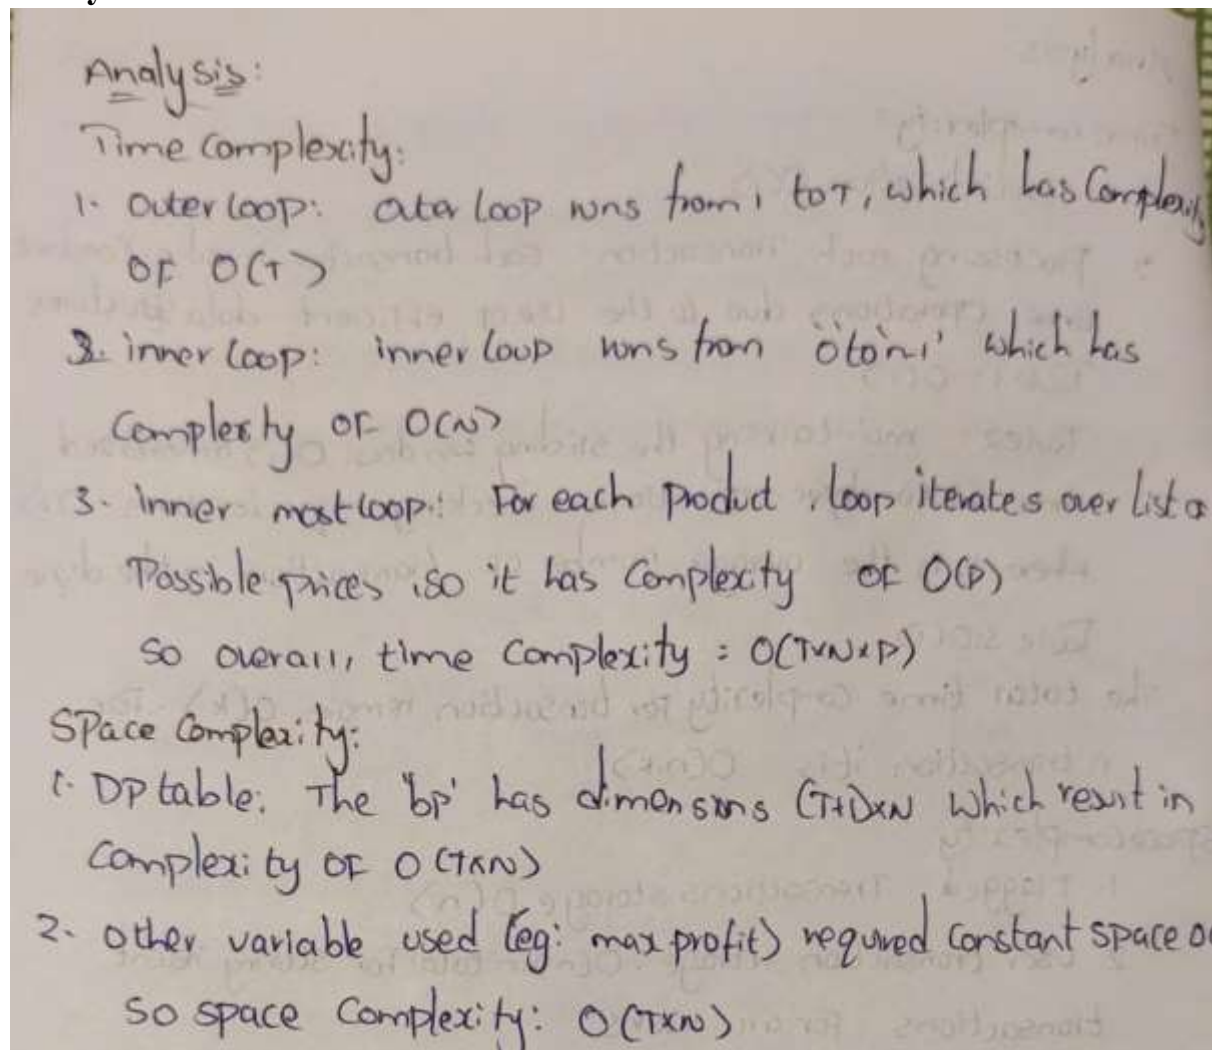 Analysis:
Time complexity:
1. Outer loop: outer loop runs from 1 to T, which has Complexity
OF O(T)
2. inner loop: inner loop runs from '0 to n-1' which has
Complexity OF O(N)
3. Inner most loop: For each product, loop iterates over list o
Possible prices, so it has complexity OF O(P)
So overall, time complexity: O(T×N×P)
Space Complexity:
1. DP table: The 'DP' has dimensions (T+1)×N which result in
Complexity OF O(T×N)
2. other variable used (eg: max profit) required constant space O(
So space complexity: O(T×N)